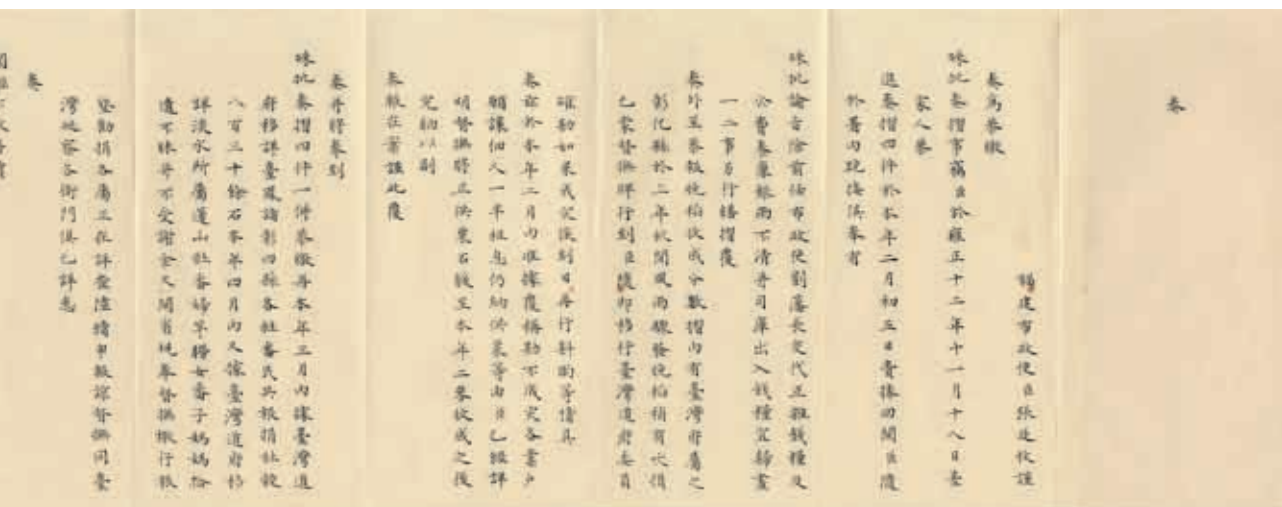 奏
福建布政使臣張廷枚謹
奏為恭繳
硃批奏摺事竊臣於雍正十二年十一月十八日差
家人恭
進奏摺四件於本年二月初五日賫捧回閩臣隨
於署內跪接俱奉有
硃批諭旨除前任布政使劉藩長交代正雜錢糧及
公費養廉糾雨不清并司庫出入錢糧宜歸畫
一二事另行繕摺覆
奏外至恭報晚稻收成分數摺內有臺灣府屬之
彰化縣於二年秋間風雨驟發晚稻稍有欠損
乙蒙督撫牌行到臣隨即移行臺灣道府委員
確勘如果成災復到日再行斟酌等情具
奏茲於本年二月內准據覆稱勘不成災各業戶
願讓佃人一半租息仍納供粟等由臣乙經詳
明督撫將正供粟石緩至本年二麥收成之後
完納以副
奏報在案謹此覆
奏并將奉到
硃批奏摺四件一併恭繳再本年三月內據臺灣道
府移詳臺鳳諸彰四縣各社番民共報捐社穀
八百三十餘石本年四月內又據臺灣道府移
詳淡水所屬蓬山社番婦 女番子媽媽拾
遺不昧并不受謝金又閩省現奉督撫檄行

勸捐各屬正在詳 陸續申報 督撫同臺
灣 各衙門俱乙詳悉
奏